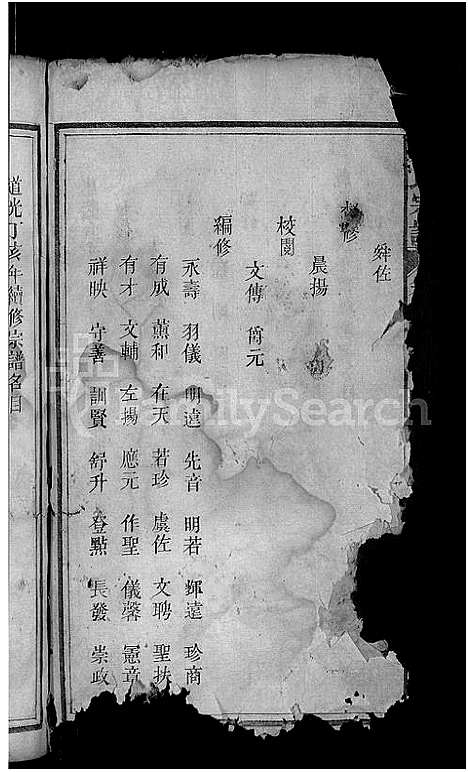 舜佐
修
晨揚
校閱
文傳 喬元
編修
永壽 羽儀 明遠 先音 明若 輝遠 珍商
有成 薰和 在天 若珍 虞佐 文聘 聖扶
有才 文輔 左揚 應元 作聖 儀馨 憲章
祥映 守善 訓賢 舒升 登點 長發 崇政
道光丁亥年續修宗譜名目
FamilySearch